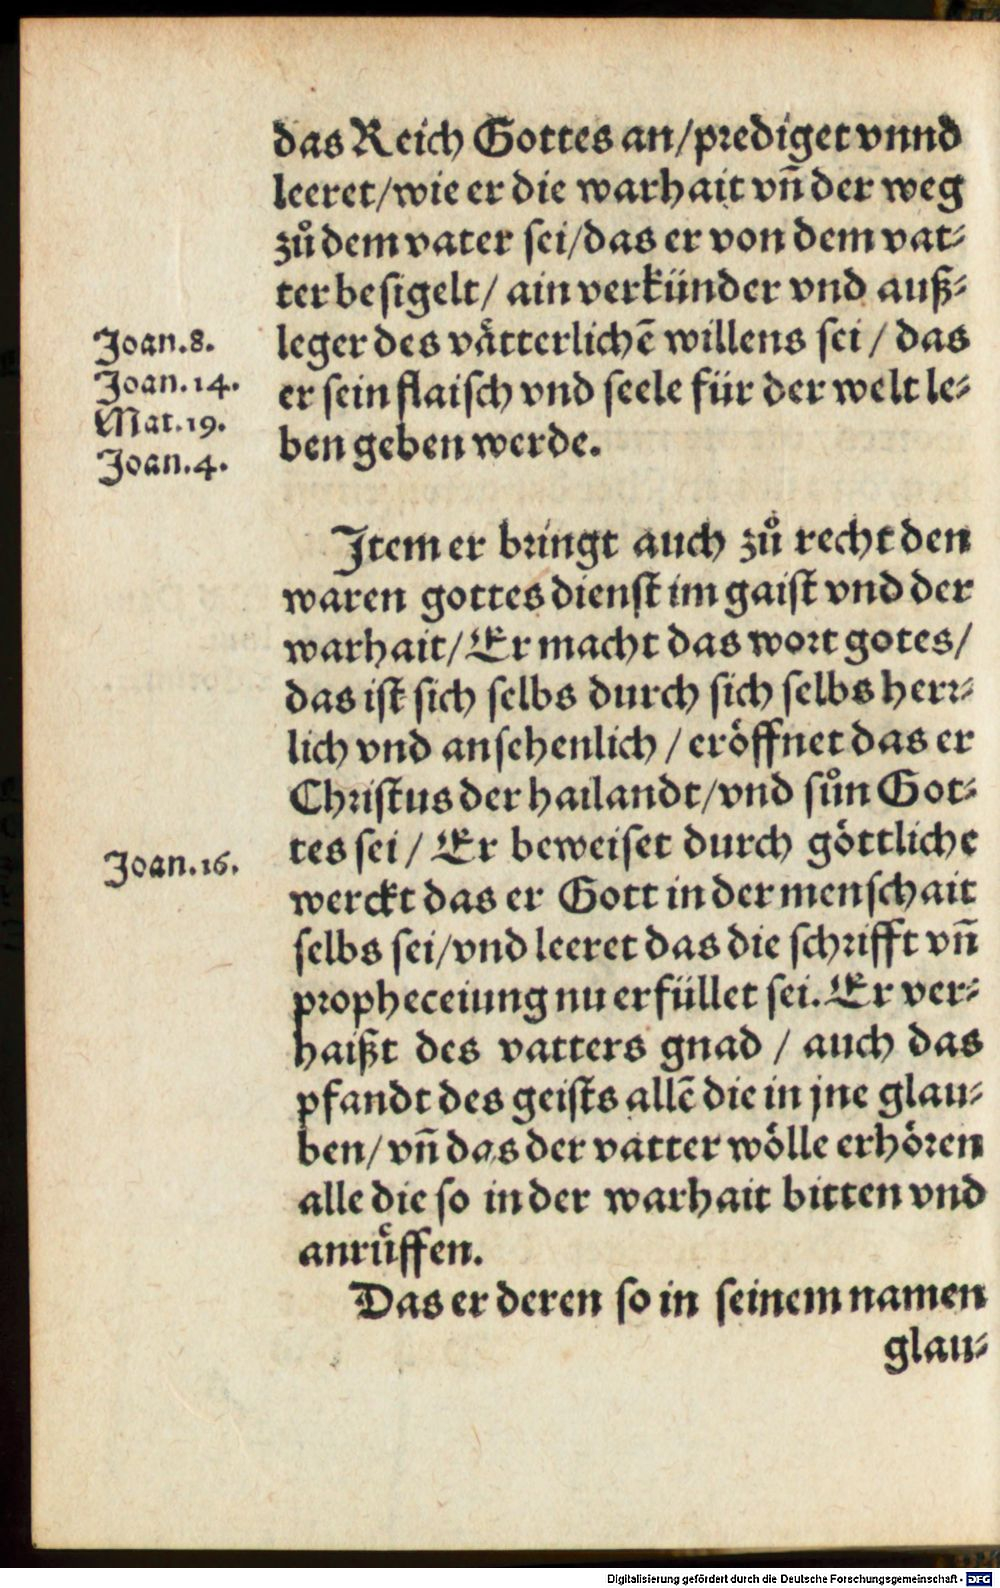 das Reich Gottes an/prediget vnnd
leeret/wie er die warhait vñ der weg
zů dem vater sei/das er von dem vat⸗
ter besigelt/ ain verkünder vnd auß⸗
Joan.8.
leger des vätterlichē willens sei / das
Joan.14.
er sein flaisch vnd seele für der welt le⸗
Mat.19.
ben geben werde.
Joan.4.
Item er bringt auch zů recht den
waren gottes dienst im gaist vnd der
warhait/ Er macht das wort gotes/
das ist sich selbs durch sich selbs herr⸗
lich vnd ansehenlich / eröffnet das er
Christus der hailandt/vnd sůn Got⸗
tes sei / Er beweiset durch göttliche
Joan.16.
werckt das er Gott in der menschait
selbs sei/vnd leeret das die schrifft vñ
propheceiung nu erfüllet sei. Er ver⸗
haißt des vatters gnad / auch das
pfandt des geists allē die in jne glau⸗
ben/ vñ das der vatter wölle erhören
alle die so in der warhait bitten vnd
anrüffen.
Das er deren so in seinem namen
glau⸗
Digitalisierung gefördert durch die Deutsche Forschungsgemeinschaft - DFG